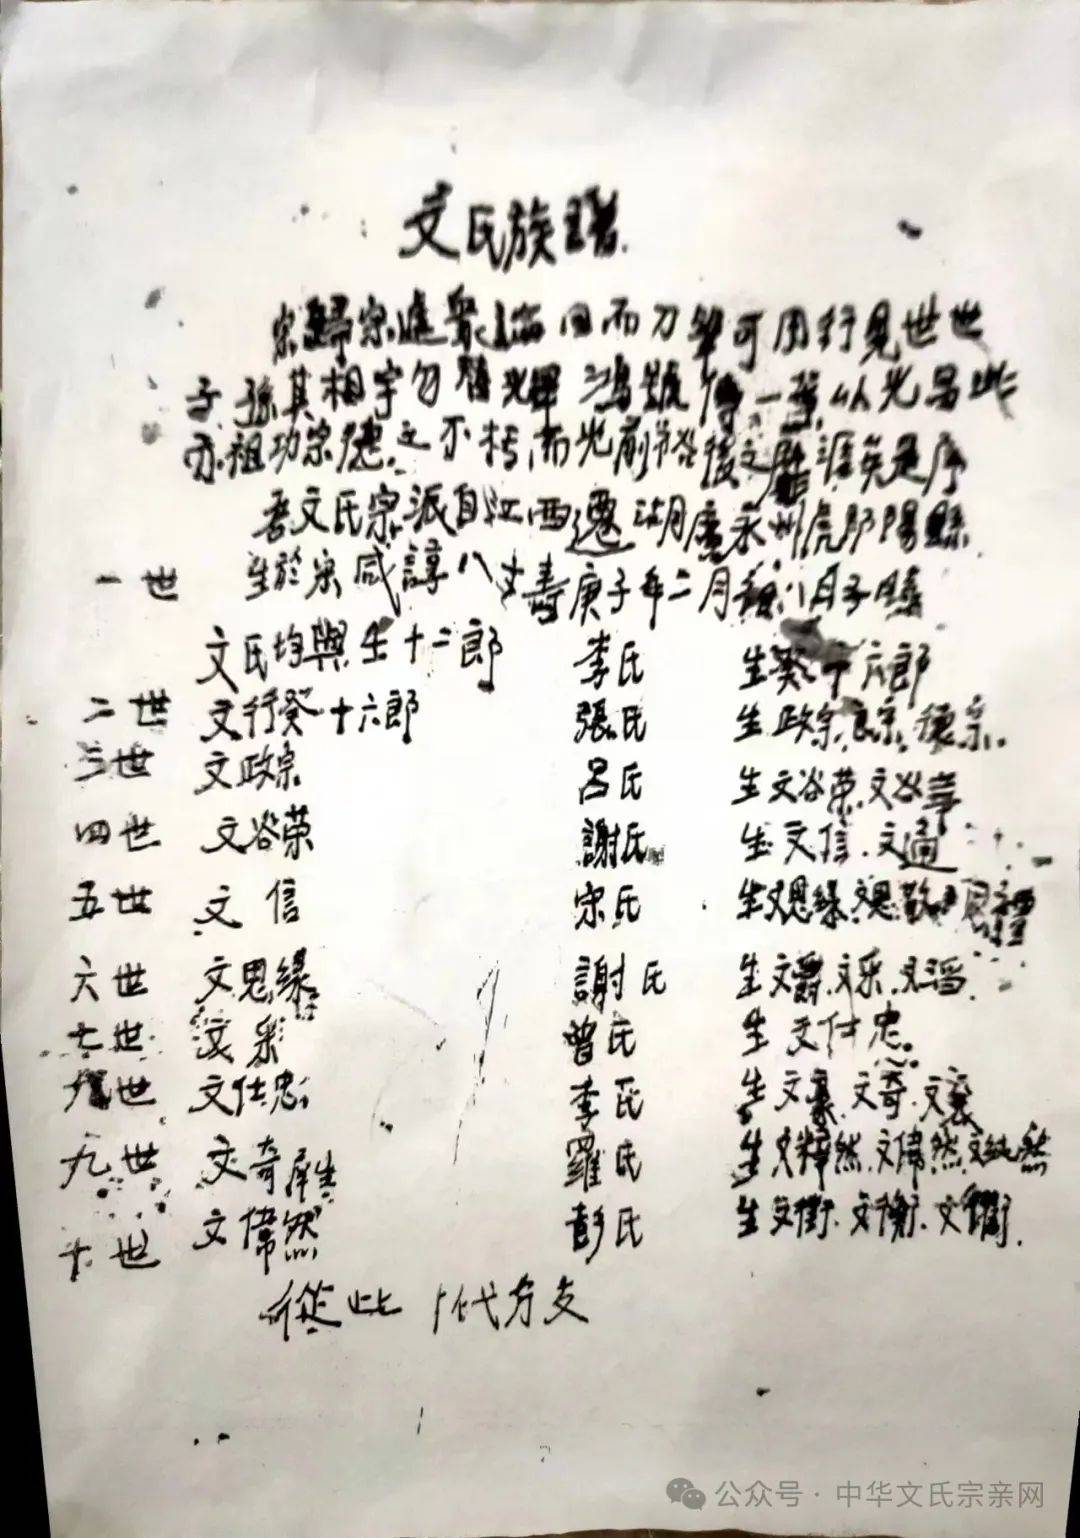 文氏族譜
宗歸宗進衆 而刀筆可用行見世世
子孫其相守勿替光輝鴻號傳一 以光昌此
亦祖功宗德之不朽而光前裕後之 是序
吾文氏宗派自江西遷湖廣永州 陽縣
一世 生於宋咸諄八 壽庚子年二月 八日子時
文氏均與生十二郎 李氏 生癸十六郎
二世 文行癸十六郎 張氏 生政宗.良宗.德宗.
三世 文政宗 呂氏 生文谷荣.文谷
四世 文谷荣 謝氏 生文信.文通
五世 文信 宋氏 生文思緣.文思敬. 思禮
六世 文思緣 謝氏 生文 .文乐.文滔
七世 文彩 曾氏 生文仕忠
八世 文仕忠 李氏 生文豪.文奇.文
九世 文奇 庠生 羅氏 生文粹然.文偉然.文純然
十世 文偉然 彭氏 生文衛.文衡.文
從此十代分支
公众号·中华文氏宗亲网